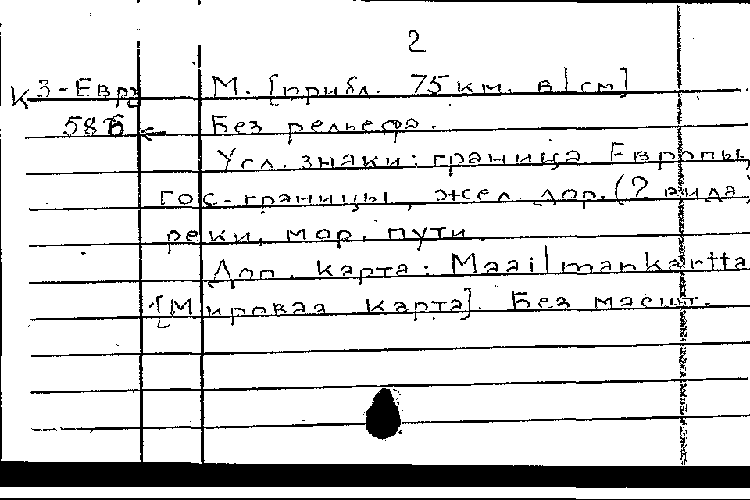 2
К 3-Евр. М. [прибл. 75 км. в 1 см]
58Б Без рельефа.
Усл. знаки: граница Европы,
гос. границы, жел. дор. (2 вида)
реки, мор. пути.
Доп. карта: Maailmankartta
[Мировая карта]. Без масшт.